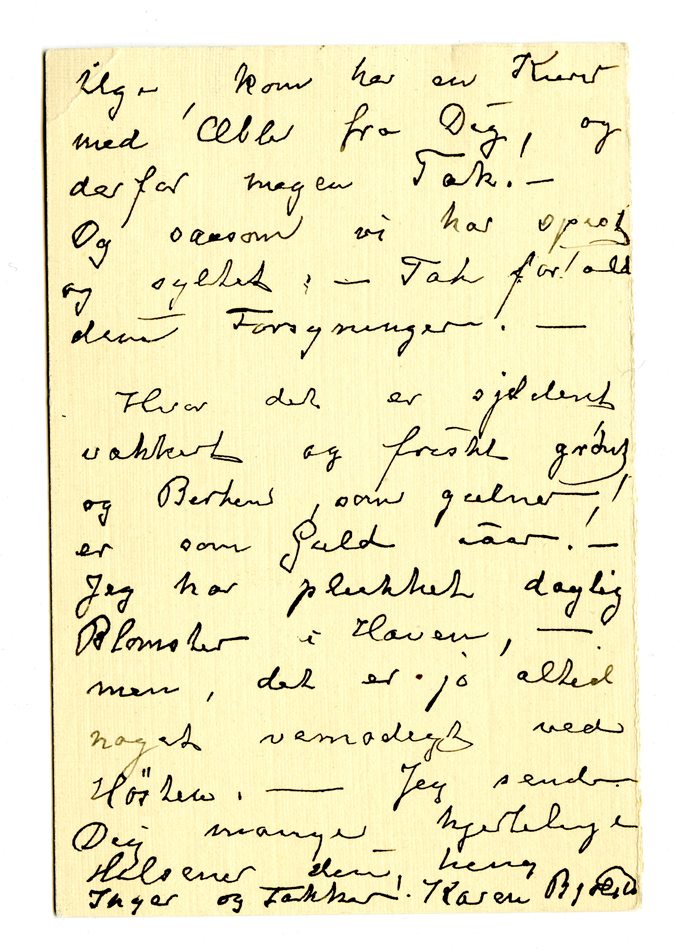 kom her en Kurv
med Æbler fra Dig, og
derfor megen Tak! —
Og saasom vi har spist
og syltet: — Tak for! all
denne Forsyningen. —
Hvor det er sjeldent
vakkert og friskt grønt
og Berken, som gulner,!
er som Guld iaar! —
Jeg har plukket daglig
Blomster i Haven, —
men, det er jo altid
noget vemodigt ved
Hösten. — Jeg sender
Dig mange hjertelige
Hilsener din heng
Inger og Takker! Karen